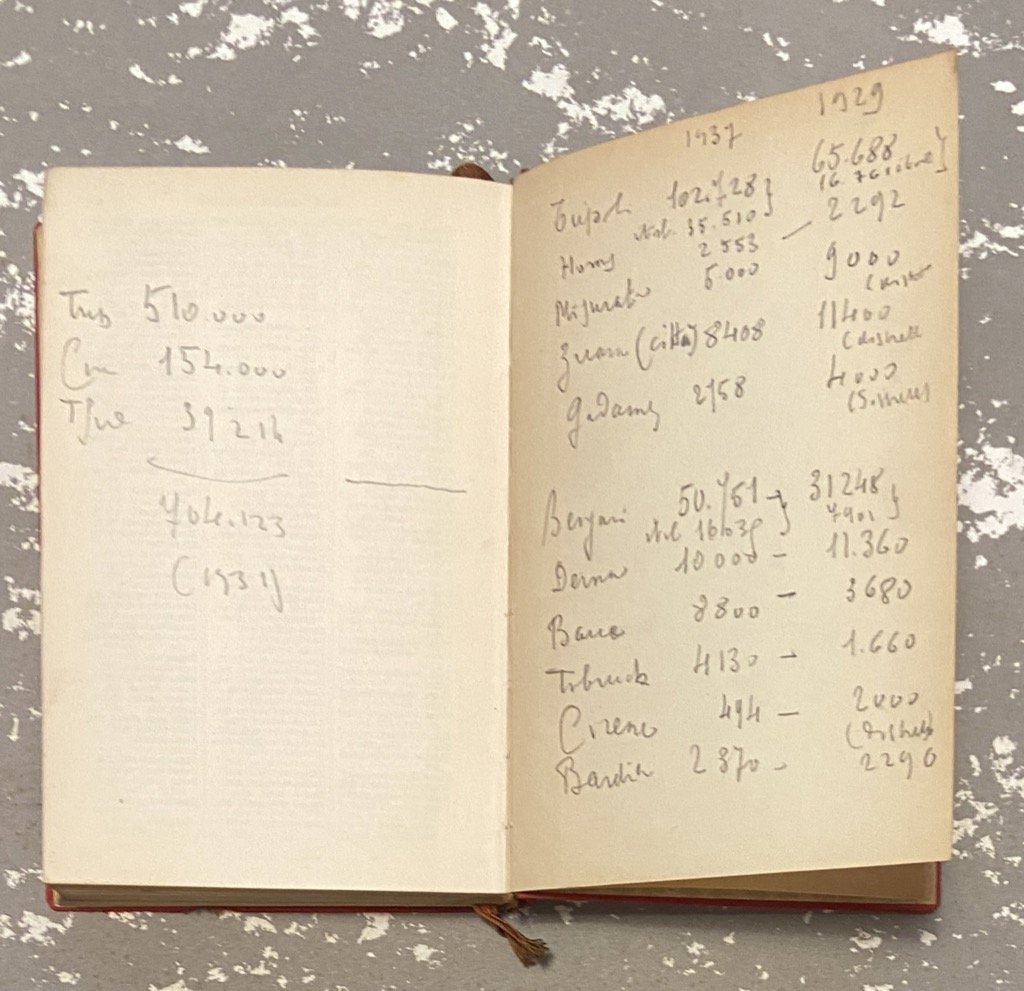 Trip 510.000
Cir 154.000
704.123
1937 1929
Tripoli 102.728} 65.688
ital. 35.510
Homs 2553 — 2292
Misurata 5.000 9000
Zuara (città) 8408 11400
(distrett
Gadames 2158 4000
Bengasi 50.761 - 31248
ital 7901
Derna 10000 - 11.360
Barce 8800 - 3680
Tobruck 4130 - 1.660
Cirene 494 - 2000
Bardia 2370 - 2290